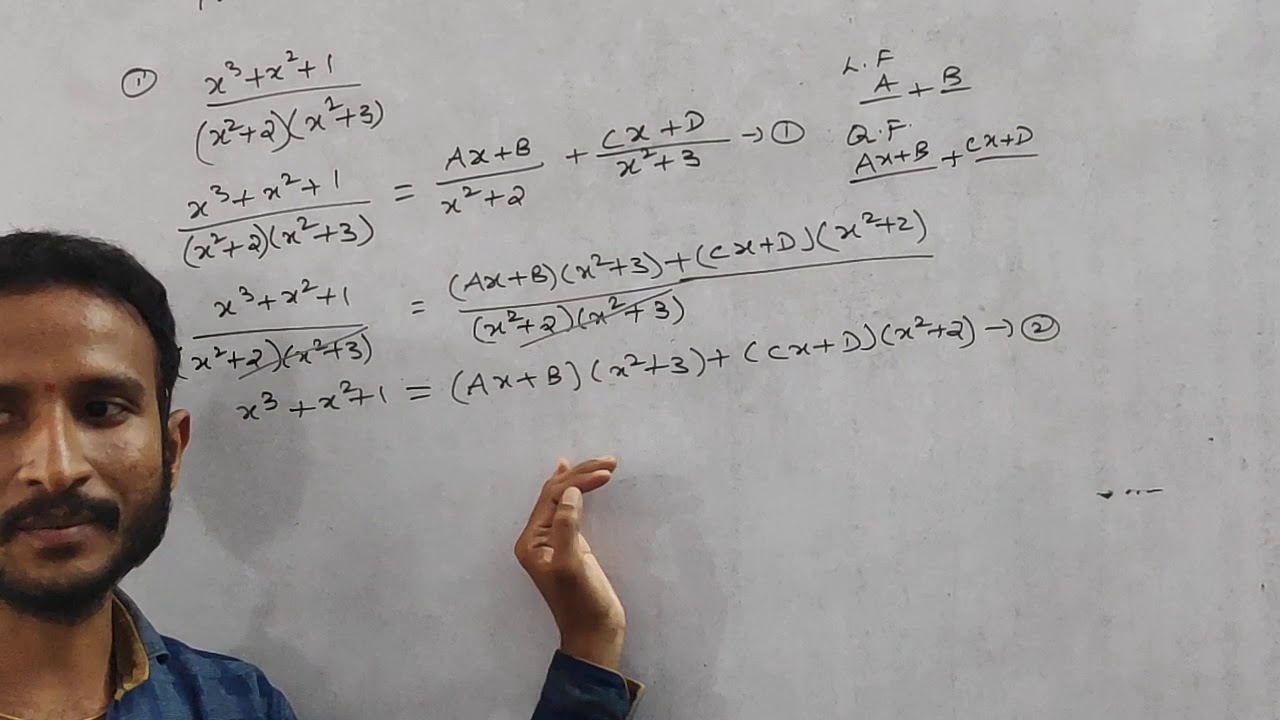 ① x³+x²+1 / (x²+2)(x²+3)
L.F
A + B
x³+x²+1 / (x²+2)(x²+3) = Ax+B / x²+2 + Cx+D / x²+3 → ①
Q.F.
Ax+B + Cx+D
x³+x²+1 / (x²+2)(x²+3) = (Ax+B)(x²+3)+(Cx+D)(x²+2) / (x²+2)(x²+3)
x³+x²+1 = (Ax+B)(x²+3)+(Cx+D)(x²+2) → ②